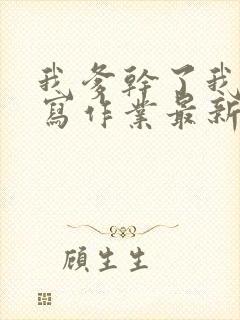 我爹幹了我
寫作業最新
顧生生